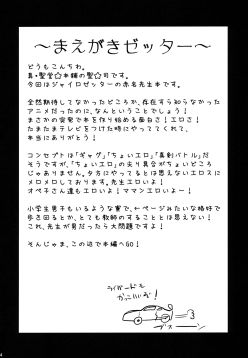 〜まえがきゼッター〜
どうもこんちわ。
真・聖堂☆本舗の聖☆司です。
今回はジャイロゼッターの赤名先生本です。
全然期待してなかったどころか、存在すら知らなかった
アニメだったのに、なんということでしょう！
まさかの突発で本を作り始める俺あさ！エロさ！
たまたまテレビをつけた時にやっててくれて、
本当にありがとう！
コンセプトは「ギャグ」「ちょいエロ」「真剣バトル」だ
そうですが、「ちょいエロ」の尖り具合がちょいどころ
じゃありません。夕方にやってるとは思えないエロスに
メロメロしております。先生エロいよ！
オペ子さん達もエロいよ！ママンエロいよー！
小学生男子もいるような車で、1ページみたいな格好で
歩き回るとか、とても教師のすることとは思えない！
これ、先生が男だったら大問題ですよ！
そんじゃま、この辺で本編へGO！
ライバードも
かっこいいぞ！
=3
ブスーン